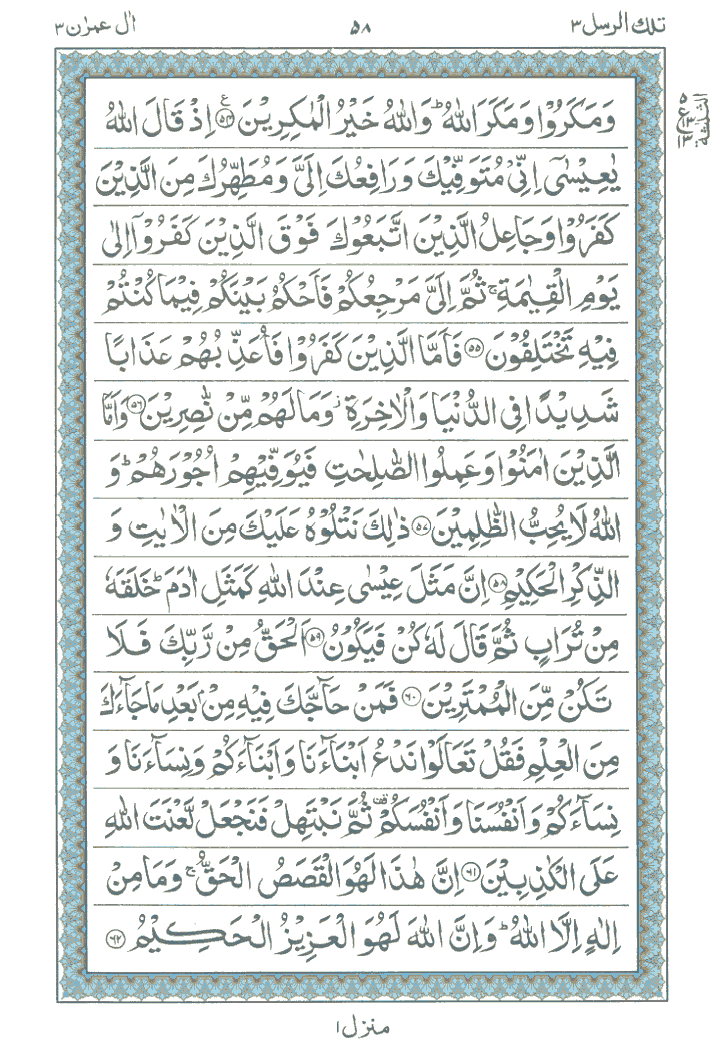 تلك الرسل ٣
٥٨
ال عمرٰن ٣
وَمَكَرُوْا وَمَكَرَ اللّٰهُ ؕ وَاللّٰهُ خَيْرُ الْمٰكِرِيْنَ ﴿۵۴﴾ ع اِذْ قَالَ اللّٰهُ
يٰعِيْسٰۤى اِنِّىْ مُتَوَفِّيْكَ وَرَافِعُكَ اِلَىَّ وَمُطَهِّرُكَ مِنَ الَّذِيْنَ
كَفَرُوْا وَجَاعِلُ الَّذِيْنَ اتَّبَعُوْكَ فَوْقَ الَّذِيْنَ كَفَرُوْۤا اِلٰى
يَوْمِ الْقِيٰمَةِ ۚ ثُمَّ اِلَىَّ مَرْجِعُكُمْ فَاَحْكُمُ بَيْنَكُمْ فِيْمَا كُنْتُمْ
فِيْهِ تَخْتَلِفُوْنَ ﴿۵۵﴾ فَاَمَّا الَّذِيْنَ كَفَرُوْا فَاُعَذِّبُهُمْ عَذَابًا
شَدِيْدًا فِى الدُّنْيَا وَالْاٰخِرَةِ ؗ وَمَا لَهُمْ مِّنْ نّٰصِرِيْنَ ﴿۵۶﴾ وَاَمَّا
الَّذِيْنَ اٰمَنُوْا وَعَمِلُوا الصّٰلِحٰتِ فَيُوَفِّيْهِمْ اُجُوْرَهُمْ ؕ وَ
اللّٰهُ لَا يُحِبُّ الظّٰلِمِيْنَ ﴿۵۷﴾ ذٰلِكَ نَتْلُوْهُ عَلَيْكَ مِنَ الْاٰيٰتِ وَ
الذِّكْرِ الْحَكِيْمِ ﴿۵۸﴾ اِنَّ مَثَلَ عِيْسٰى عِنْدَ اللّٰهِ كَمَثَلِ اٰدَمَ ؕ خَلَقَهٗ
مِنْ تُرَابٍ ثُمَّ قَالَ لَهٗ كُنْ فَيَكُوْنُ ﴿۵۹﴾ اَلْحَقُّ مِنْ رَّبِّكَ فَلَا
تَكُنْ مِّنَ الْمُمْتَرِيْنَ ﴿۶۰﴾ فَمَنْ حَآجَّكَ فِيْهِ مِنْۢ بَعْدِ مَا جَآءَكَ
مِنَ الْعِلْمِ فَقُلْ تَعَالَوْا نَدْعُ اَبْنَآءَنَا وَاَبْنَآءَكُمْ وَنِسَآءَنَا وَ
نِسَآءَكُمْ وَاَنْفُسَنَا وَاَنْفُسَكُمْ ۫ ثُمَّ نَبْتَهِلْ فَنَجْعَلْ لَّعْنَتَ اللّٰهِ
عَلَى الْكٰذِبِيْنَ ﴿۶۱﴾ اِنَّ هٰذَا لَهُوَ الْقَصَصُ الْحَقُّ ۚ وَمَا مِنْ
اِلٰهٍ اِلَّا اللّٰهُ ؕ وَاِنَّ اللّٰهَ لَهُوَ الْعَزِيْزُ الْحَكِيْمُ ﴿۶۲﴾
الثلثة
٥
ع
١٣
١٣
منزل ١